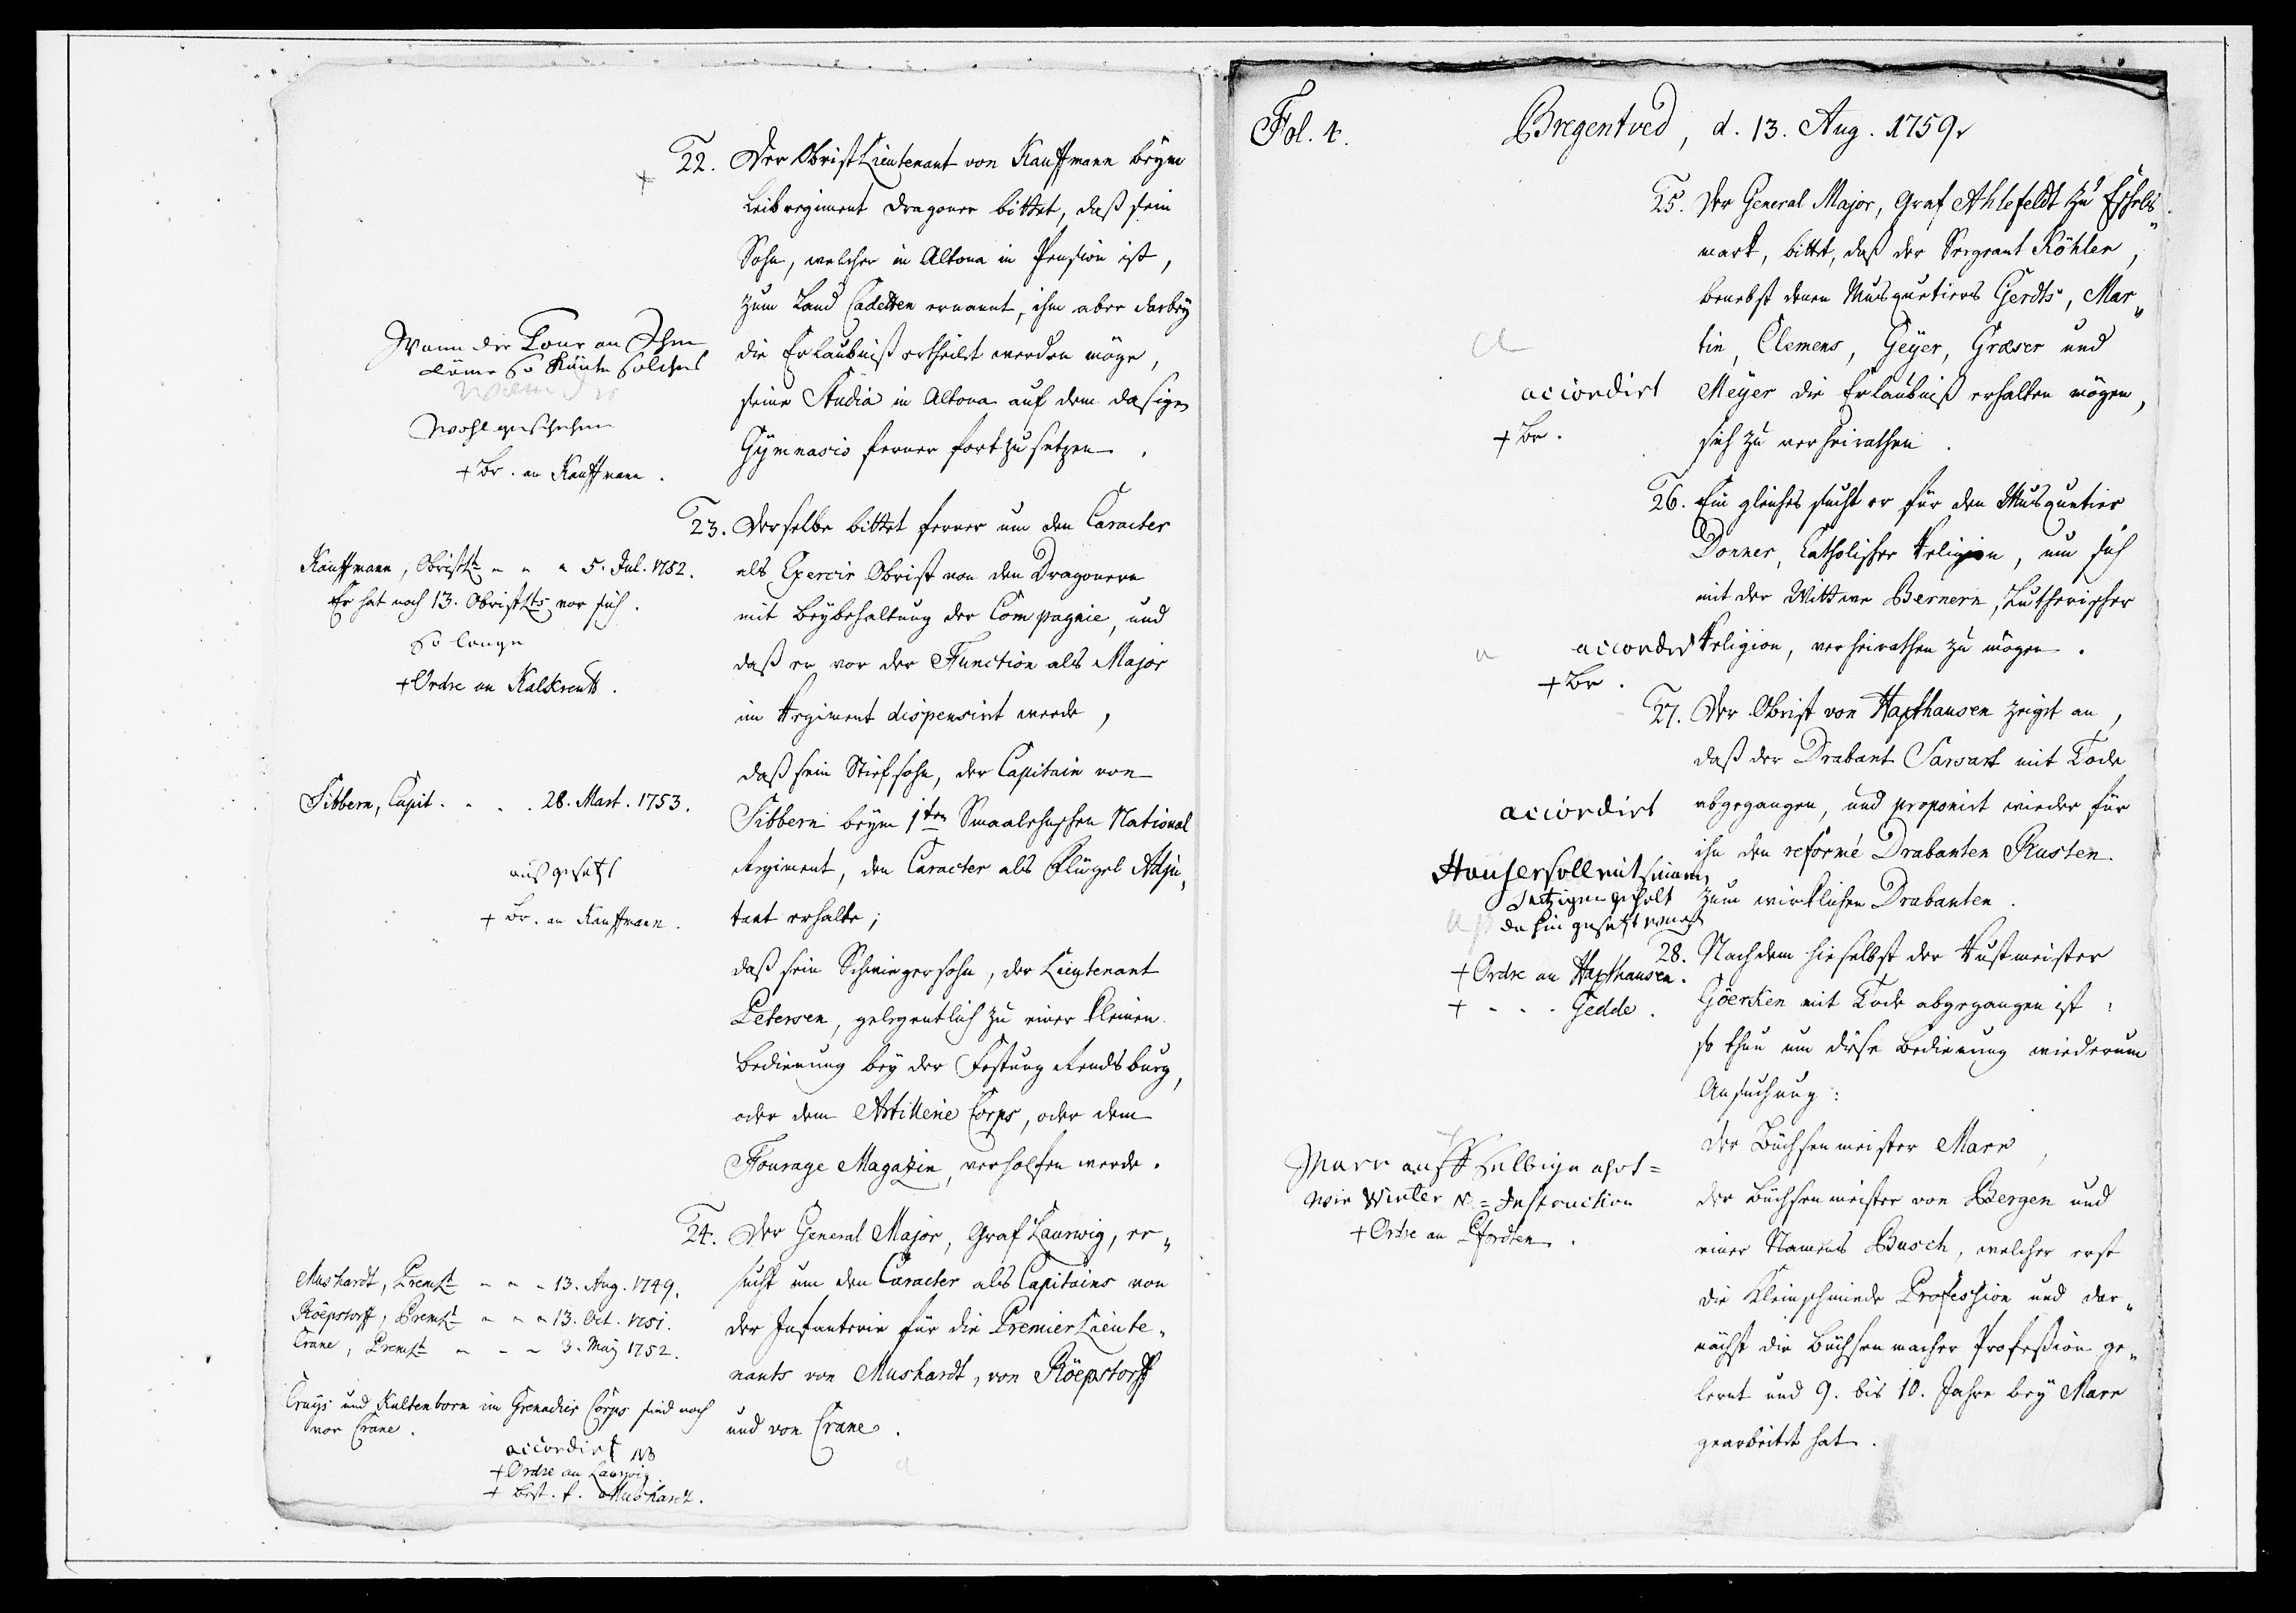 22. Der ObristLieutenant von Kauffmann beym
Leibregiment Dragoner bittet, daß sein
Sohn, welcher in Altona in Pension ist,
zum Land Cadetten ernannt, ihm aber darbey
die Erlaubniß ertheilet werden möge,
seine Studia in Altona auf dem dasigen
Gymnasio ferner fortzusetzen.
Wann die Tour an Ihm
käme so könte solches
wohl geschehen
+ Br. an Kauffmann.
23. Derselbe bittet ferner um den Caracter
als Exercir Obrist von den Dragonern
mit Beybehaltung der Compagnie, und
daß er von der Function als Major
im Regiment dispensirt werde,
Kauffmann, ObristLt - - - 5. Jul. 1752.
Er hat noch 13. ObristLts vor sich.
so lange
+ Ordre an Kalkreutt.
daß sein Stiefsohn, der Capitain von
Sibbern beym 1ten Smaalehnschen National
Regiment, den Caracter als Flügel Adju„
tant erhalte;
Sibbern, Capit. . . . 28. Mart. 1753.
ausgesetzt
+ Br. an Kauffmann.
daß sein Schwiegersohn, der Lieutenant
Petersen, gelegentlich zu einer kleinen
Bedienung bey der Festung Rendsburg,
oder dem Artillerie Corps, oder dem
Fourage Magazin, verholfen werde.
24. Der General Major, Graf Laurwig, er„
sucht um den Caracter als Capitains von
der Infanterie für die PremierLieute„
nants von Mushardt, von Röepstorff
und von Crane.
Mushardt, PremLt - - - 13. Aug. 1749.
Röepstorff, PremLt - - - 13. Oct. 1751.
Crane, PremLt - - - 3. Maj 1752.
Cruys und Kaltenborn im Grenadier Corps sind noch
vor Crane.
accordirt NB
+ Ordre an Laurwig.
+ Best. f. Mushardt.
Fol. 4.
Bregentved, d. 13. Aug. 1759.
25. Der General Major, Graf Ahlefeldt zu Eschels„
mark, bittet, daß der Sergeant Köhler,
benebst denen Musquetiers Gerdts, Mar„
tin, Clemens, Geyer, Græser und
Meyer die Erlaubniß erhalten mögen,
sich zu verheirathen.
a
accordirt
+ Br.
26. Ein gleiches sucht er für den Musquetier
Donner, Catholischer Religion, um sich
mit der Wittwe Bernern, Lutherischer
Religion, verheirathen zu mögen.
a
accordirt
+ Br.
27. Der Obrist von Haxthausen zeiget an,
daß der Drabant Sarvart mit Tode
abgegangen, und proponirt wieder für
ihn den reformé Drabanten Rusten
zum wirklichen Drabanten.
accordirt
Hauser soll mit seinem
jetzigen gehalt
dahin gesetzt werden
+ Ordre an Haxthausen.
+ - - - Gedde.
28. Nachdem hieselbst der Rustmeister
Göerken mit Tode abgegangen ist:
so thun um diese Bedienung wiederum
Ansuchung:
der Büchsenmeister Marr,
der Büchsenmeister von Bergen und
einer Namens Busch, welcher erst
die Kleinschmiede Profession und dar„
nächst die Büchsenmacher Profeßion ge„
lernt und 9. bis 10. Jahre bey Marr
gearbeitet hat.
Marr auff selbige ahrt=
wie Winter = Instruction
+ Ordre an Pfordten.